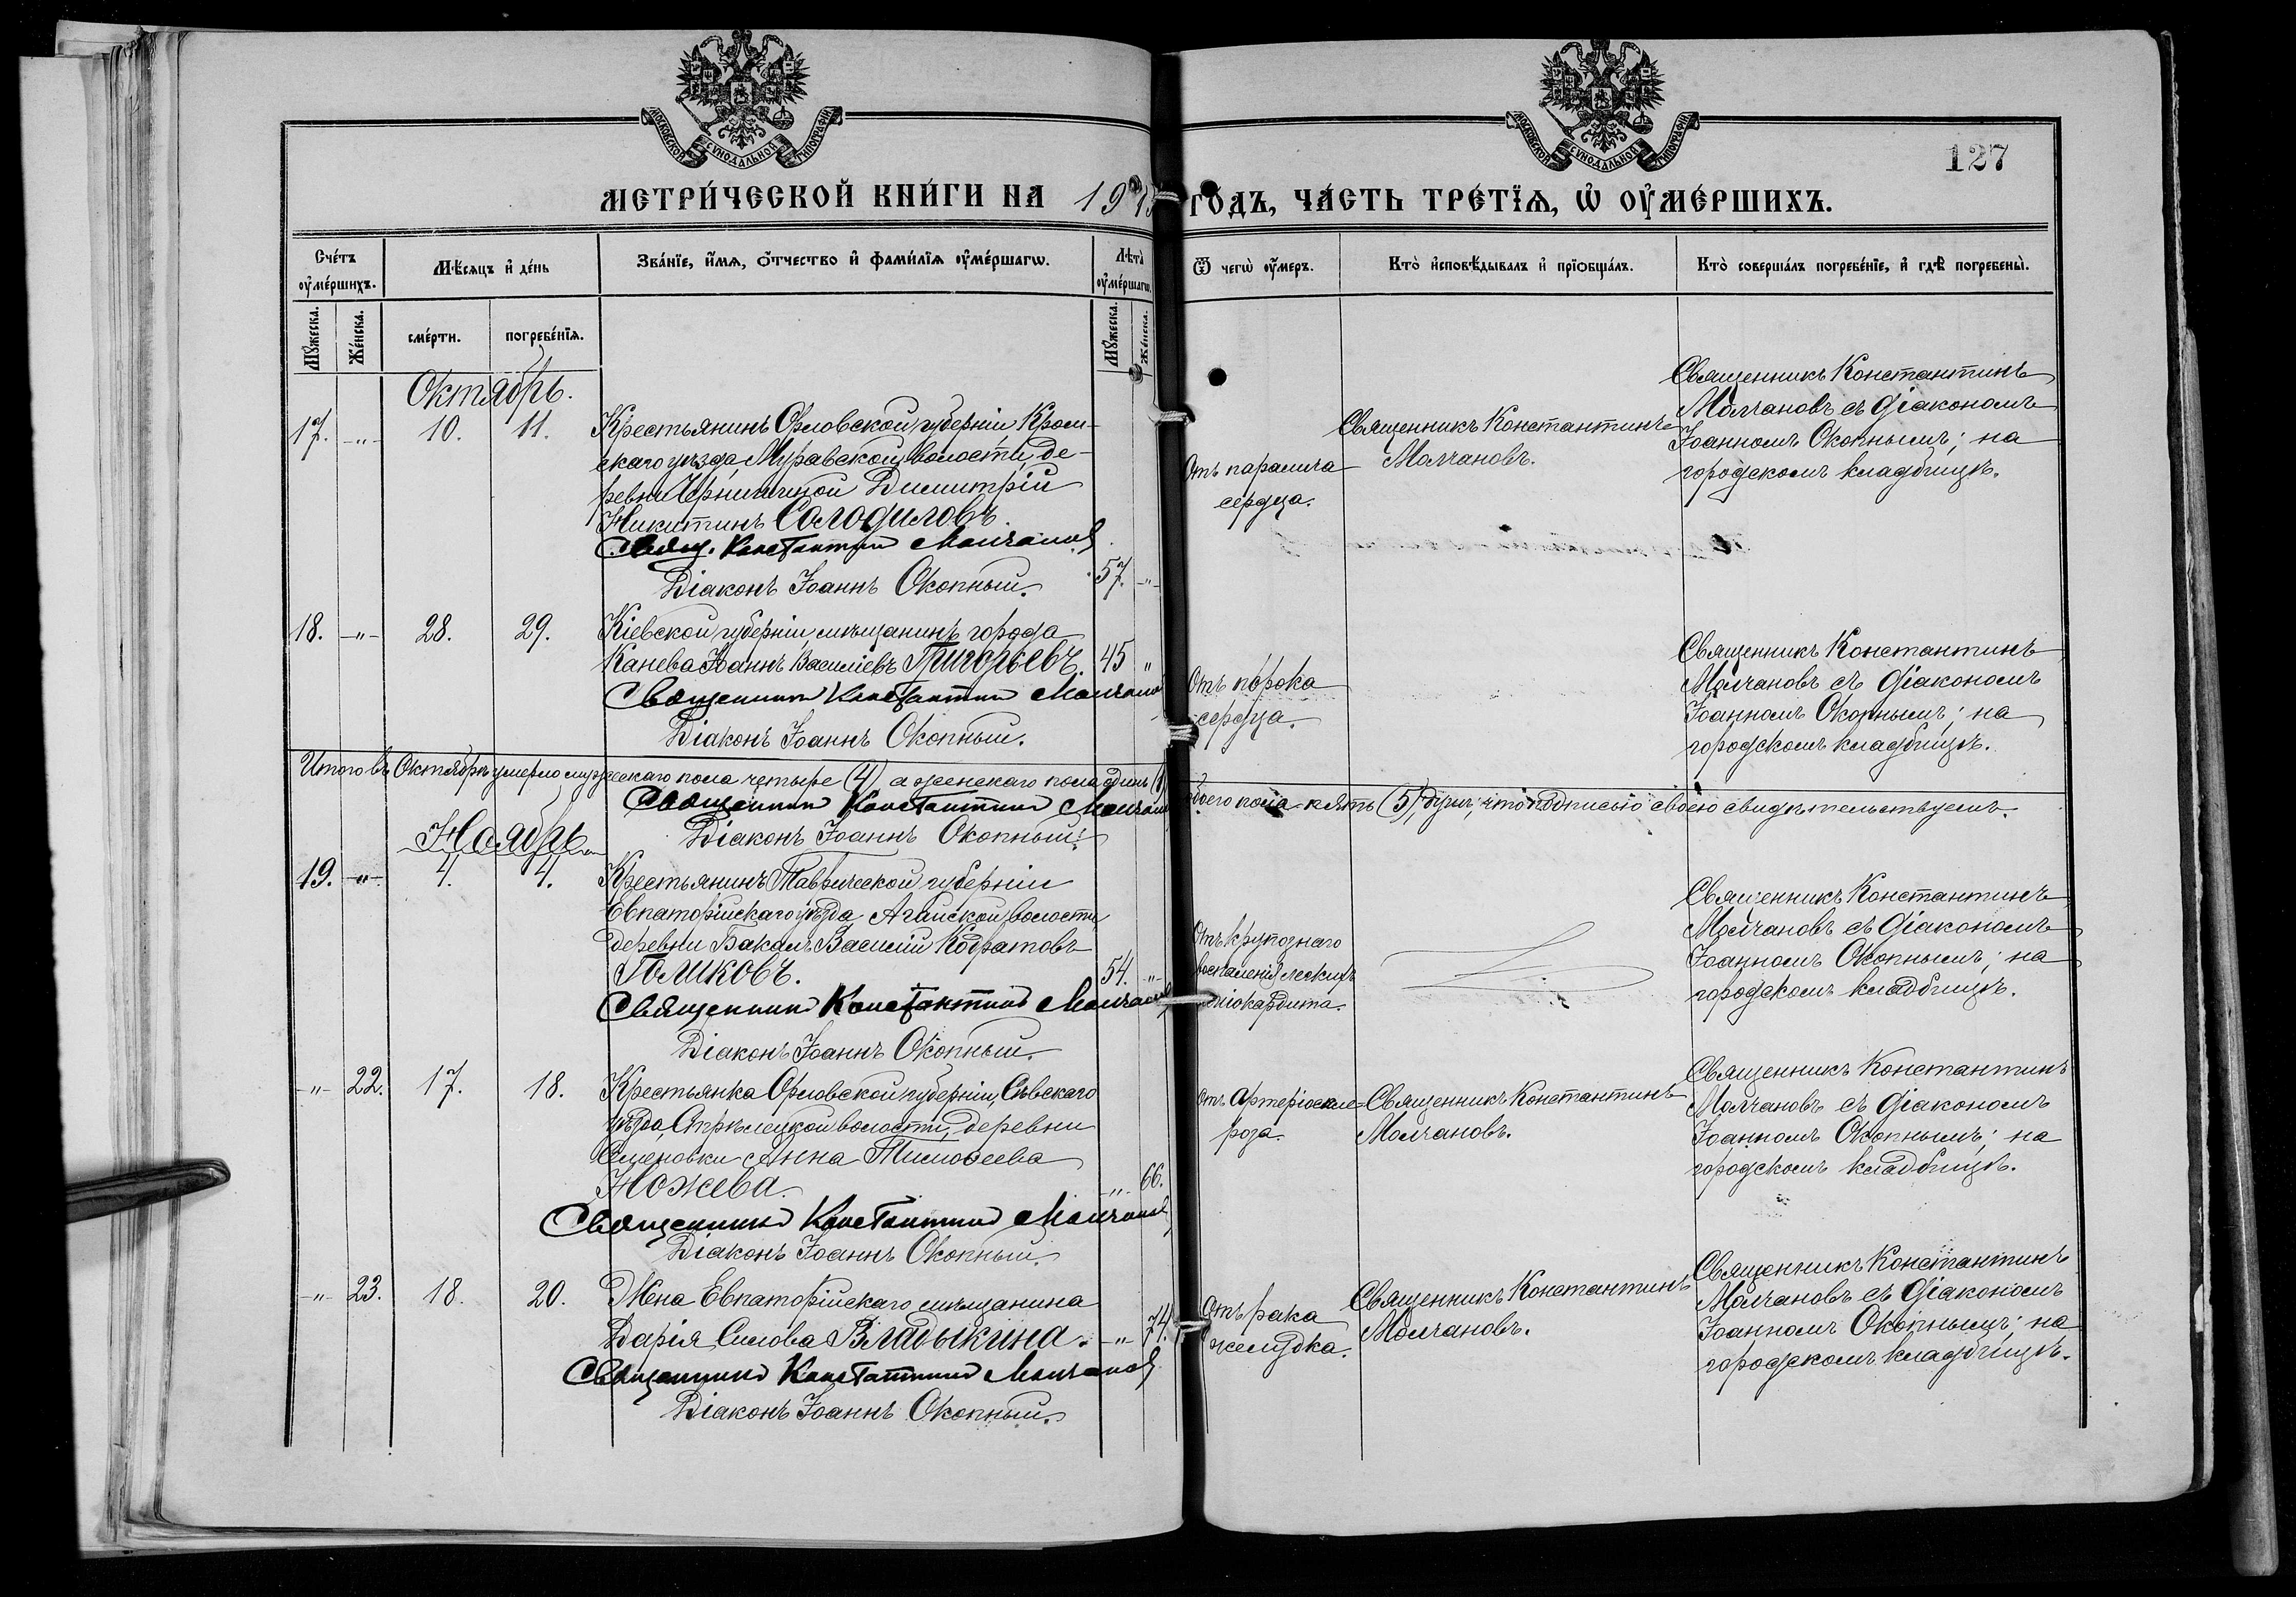 МОСКОВСКОЙ СѴНОДАЛЬНОЙ ТИПОГРАФІИ
МОСКОВСКОЙ СѴНОДАЛЬНОЙ ТИПОГРАФІИ
127
МЕТРИ́ЧЕСКОЙ КНИ́ГИ НА 1915 ГО́ДЪ, ЧА́СТЬ ТРЕ́ТЇѦ, Ѡ҆ ОУ҆МЕ́РШИХЪ.
Сче́тъ оу҆ме́ршихъ.
Мѣ́сѧцъ и҆ де́нь
Зва́нїе, и҆́мѧ, ѻ҆́тчество и҆ фами́лїѧ оу҆ме́ршагѡ.
Лѣта̀ оу҆ме́ршагѡ.
Ѿ чегѡ̀ оу҆́меръ.
Кто̀ и҆сповѣ́дывалъ и҆ прїѡбща́лъ.
Кто̀ соверша́лъ погребе́нїе, и҆ гдѣ̀ погребены̀.
Мꙋ́жеска.
Же́нска.
сме́рти.
погребе́нїѧ.
Мꙋ́жеска.
Же́нска.
Октябрь.
17. -"- 10. 11. Крестьянинъ Орловской губерніи Кром-
скаго уѣзда, Муравской волости, де-
ревни Димитрій
Никитинъ Солодиловъ.
Свящ. Константин Молчанов
Діаконъ Іоаннъ Окопный.
57. -"-
Отъ паралича
сердца.
Священникъ Константинъ
Молчановъ.
Священникъ Константинъ
Молчановъ съ діакономъ
Іоанномъ Окопнымъ; на
городскомъ кладбищѣ.
18. -"- 28. 29. Кіевской губерніи мѣщанинъ города
Канева Іоаннъ Василіевъ Григорьевъ. 45 "
Священник Константин Молчанов
Діаконъ Іоаннъ Окопный.
Отъ порока
сердца.
Священникъ Константинъ
Молчановъ съ діакономъ
Іоанномъ Окопнымъ; на
городскомъ кладбищѣ.
Итого въ Октябрѣ умерло мужескаго пола четыре (4), а женскаго пола одинъ (1)
обоего пола пять (5) душъ, что подписью своею свидѣтельствуемъ.
Священник Константин Молчанов
Діаконъ Іоаннъ Окопный.
Ноябрь
19. -"- 4. 4. Крестьянинъ Таврической губерніи
Евпаторійскаго уѣзда Агайской волости,
деревни Бакалъ Василій Кодратовъ
Голиковъ. 54. -"-
Священник Константин Молчанов
Діаконъ Іоаннъ Окопный.
Отъ крупознаго
воспаленія легкихъ
міокардита.
Священникъ Константинъ
Молчановъ съ діакономъ
Іоанномъ Окопнымъ; на
городскомъ кладбищѣ.
-"- 22. 17. 18. Крестьянка Орловской губерніи, Сѣвскаго
уѣзда, Стрѣлецкой волости, деревни
Анна Тимоѳеева
Ножева. -"- 66.
Священник Константин Молчанов
Діаконъ Іоаннъ Окопный.
Отъ артеріоскле-
роза.
Священникъ Константинъ
Молчановъ.
Священникъ Константинъ
Молчановъ съ діакономъ
Іоанномъ Окопнымъ; на
городскомъ кладбищѣ.
-"- 23. 18. 20. Жена Евпаторійскаго мѣщанина
Дарія Силова Владыкина. -"- 74.
Священник Константин Молчанов
Діаконъ Іоаннъ Окопный.
Отъ рака
желудка.
Священникъ Константинъ
Молчановъ.
Священникъ Константинъ
Молчановъ съ діакономъ
Іоанномъ Окопнымъ; на
городскомъ кладбищѣ.